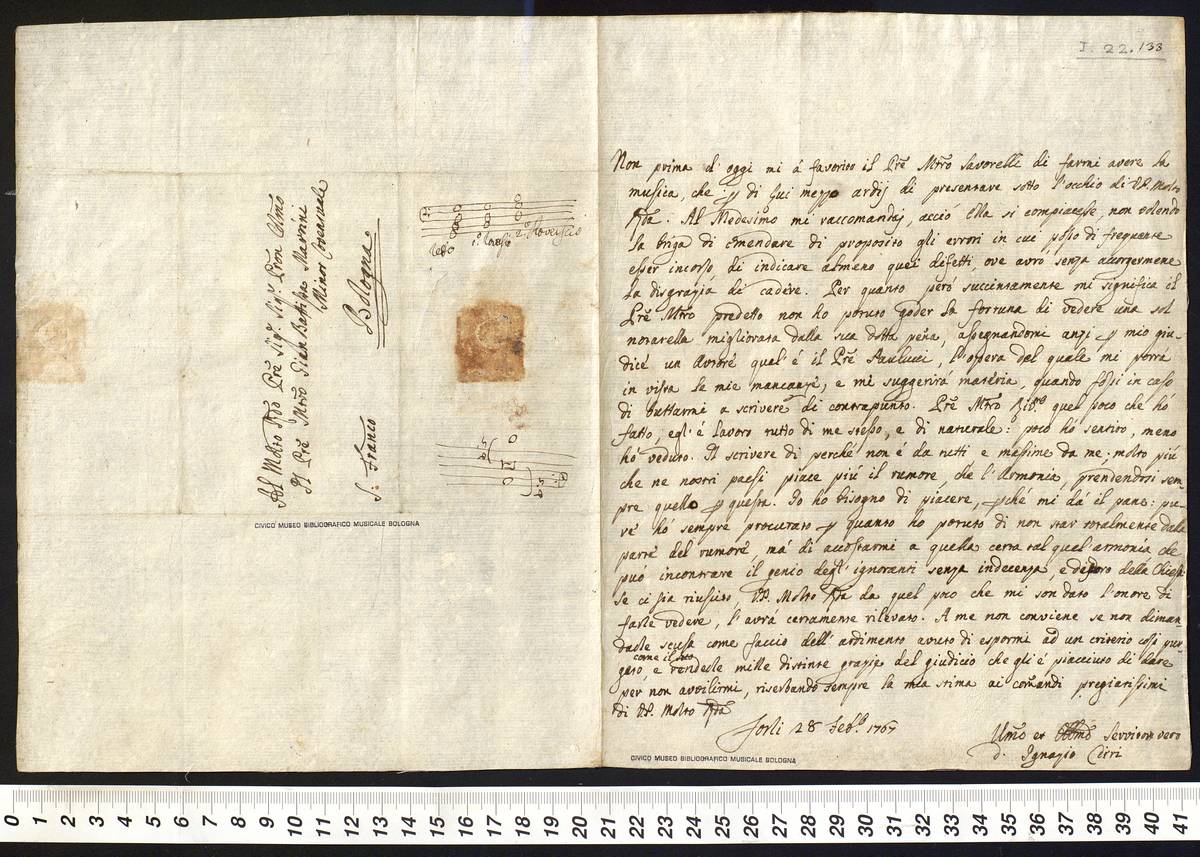 I. 22. 133
Non prima d'oggi mi á favorito il Pre Mro Savorelli di farmi avere la
musica, che p di Lui mezzo ardij di presentare sotto l'occhio di V.P. Molto
Rda. Al Medesimo mi raccomandaj, acció Ella si compiacesse, non volendo
la briga di emendare di proposito gli errori in cui posso di frequente
esser incorso, di indicare almeno quei difetti, ove avró senza accorgermene
la disgrazia di cadere. Per quanto peró succintamente mi significa il
Pre Mro predetto non ho potuto goder la fortuna di vedere una sol
notarella migliorata dalla sua dotta pena, assegnandomi anzi p mio giu-
dice un Autore qual'é il Pre Paulucci, l'opera del quale mi porrá
in vista le mie mancanze, e mi suggerirá materia, quando fossi in caso
di buttarmi a scrivere di contrapunto. Pre Mro quel poco che hó
fatto, egl'é lavoro tutto di me stesso, e di naturale: poco hó sentito, meno
hó veduto. Il scrivere di perché non é da tutti e massime da me, molto piú
che ne nostri paesi piace piú il rumore, che l'Armonia, prendendosi sem-
pre quello p questa. Io ho bisogno di piacere, pché mi dá il pane:
hó sempre procurato p quanto ho potuto di non star totalmente dalla
parte del rumore, má di accostarmi a quella certa tal qual armonia che
puó incontrare il genio degl'ignoranti senza indecenza, e della Chiesa
se ci sia riuscito, V.P. Molto Rda da quel poco che mi son dato l'onore di
farle vedere, l'avrá certamente rilevato. A me non conviene se non diman-
darle scusa come faccio dell'ardimento avuto di espormi ad un criterio cosí pur-
gato, come il suo, e renderle mille distinte grazie del giudicio che gli é piacciuto di dare
per non avvilirmi, riserbando sempre la mia stima ai comandi pregiatissimi
di V.P. Molto Rda
Forlí 28 Febb. 1767
Umo et Servitor vero
d. Ignazio Cirri
CIVICO MUSEO BIBLIOGRAFICO MUSICALE BOLOGNA
Al Molto Rdo Pre Sigr Sigr Pron Colmo
Il Pre Mro Gian Battista Martini
Minor Conventuale
Bologna.
S. Franco
1° 2° Rovescio
CIVICO MUSEO BIBLIOGRAFICO MUSICALE BOLOGNA
0 1 2 3 4 5 6 7 8 9 10 11 12 13 14 15 16 17 18 19 20 21 22 23 24 25 26 27 28 29 30 31 32 33 34 35 36 37 38 39 40 41